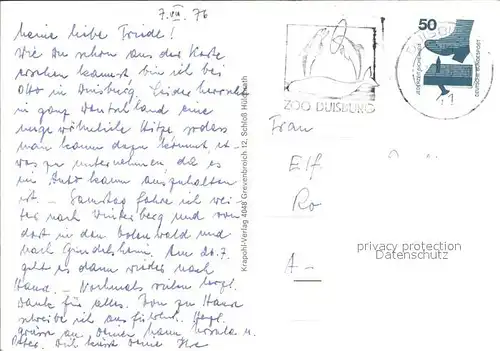 7.VII.76
Meine liebe Trude!
Wie Du schon aus der Karte
ersehen kannst, bin ich bei
Otto in Duisburg. Leider herrscht
in ganz Deutschland eine
Hitze, sodass
man kaum dazu kommt, et-
was zu unternehmen da es
im Auto kaum auszuhalten
ist. – Samstag fahre ich wei-
ter nach Winterberg und von
dort in den Odenwald und
nach Gundelsheim. Am 20.7.
geht es dann wieder nach
Hause. – Nochmals vielen herzl.
Dank für alles. Von zu Hause
schreibe ich ausführlich. Herzl.
Grüsse an Deinen Mann, Ursula u.
Peter. Dich küsst Deine Ilse
Krapohl-Verlag 4048 Grevenbroich 12, Schloß Hülchrath
ZOO DUISBURG
50
DEUTSCHE BUNDESPOST
Frau
Elf
Ro
A
privacy protection
Datenschutz